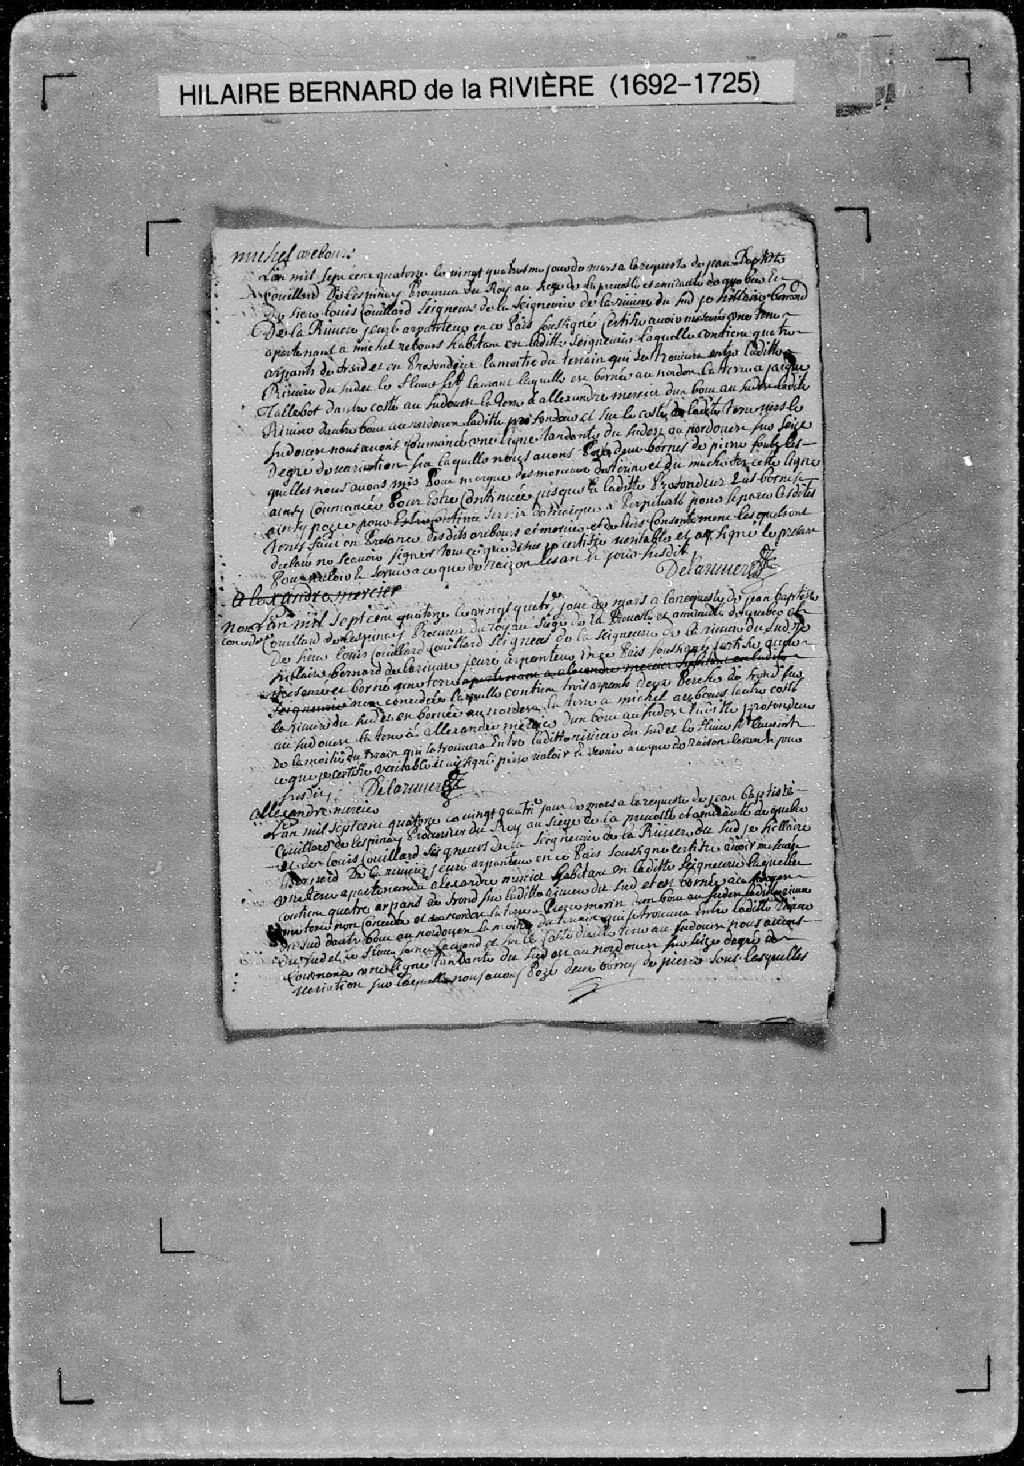 HILAIRE BERNARD de la RIVIÈRE (1692-1725)
michel arebours
Lan mil sept cent quatorze le vingt quatriesme jour de mars a la requeste de jean Baptiste
Couillard De Lespinay Procureur du Roy au siege de la prevosté et amirauté de quebec Et
De sieur Louis Couillard Seigneurs de la Seigneurie de la riviere du Sud je hillaire bernard
De la Riviere juré arpanteur en ce Païs soussigné Certifie avoir mesuré une terre
apartenant a michel rebours habitant en laditte Seigneurie laquelle contient quatre
arpants de frond et en Profondeur la moitié du terrain qui se trouvera entre laditte
Riviere du Sud et le fleuve St laurant laquelle est bornée au nordest la terre a jacque
Tallebot dautre costé au Sudouest la terre d allexandre mercier dun bout au Sudest ladite
Riviere dautre bout au nordouest laditte profondeur et sur le costé de ladite terre vers le
Sudouest nous avons Commancé une ligne tandante du Sudest au nordouest sur Seize
Degré de variation sur laquelle nous avons Pozé deux bornes de pierre soubz les-
quelles nous avons mis Pour marque des morceaux de terine et du machefer cette ligne
ainsy Commancée Pour Estre Continuée jusque a laditte Profondeur Les bornes
ainsy pozée pour servir a Perpetuité pour separer lesdites
terres fait en Presance desdits arebours et mercier et de leurs Consentement lesquels ont
declaré ne sçavoir signer tout ce que dessus je certifie veritable et ay signé le presant
Pour valoir Et servir a ce que de raizon Lesan Et jours susdit
Delariviere
alexandre mercier
non concedé
Lan mil sept cent quatorze le vingt quatre jour de mars a la requeste de jean baptiste
Couillard de Lespinay Procureur du roy au siege de la Prevosté et amirauté de quebec et
de sieur Louis Couillard Couillard Seigneurs de la Seigneurie de la riviere du Sud je
hillaire bernard de lariviere juré arpanteur en ce Païs soussigné certifie avoir
mesuré et borné une terre apartenant a alexandre mercier habitant en laditte
Seigneurie non concedée laquelle contient trois arpants deux Perche de frond sur
la Riviere du Sud et en bornée au nordest la terre a michel arebours dautre costé
au Sudouest la terre a allexandre mercier dun bout au Sudest laditte profondeur
De la moitié du terrain qui se trouvera Entre laditte riviere du Sud et le fleuve St laurent
ce que je certifie veritable et ay signé pour valoir Et servir a ce que de Raison Lesan et jour
susdit
Delariviere
allexandre mercier
Lan mil sept cent quatorze le vingt quatre jour de mars a la requeste de jean baptiste
Couillard de Lespinay Procureur du Roy au siege de la prevosté et amirauté de quebec
et de Louis Couillard Seigneurs de la Seigneurie de la Riviere du Sud je hillaire
bernard De la riviere juré arpanteur en ce Païs soussigné certifie avoir mesuré
une terre apartenant a alexandre mercier habitant en laditte Seigneurie laquelle
contient quatre arpans de frond sur laditte riviere du Sud et est bornée
une terre non Concedée et au sordouest la terre a Pierre morin dun bout au Sudest laditte riviere
du Sud dautre bout au nordouest la moitié du terrain qui se trouvera Entre laditte riviere
du Sud et le fleuve saint laurand et sur le Costé de laditte terre au Sudouest nous avons
Commancé une ligne tandante du Sud est au nordouest sur Seize degré de
variation sur laquelle nous avons Pozé deux bornes de pierre sous lesquelles